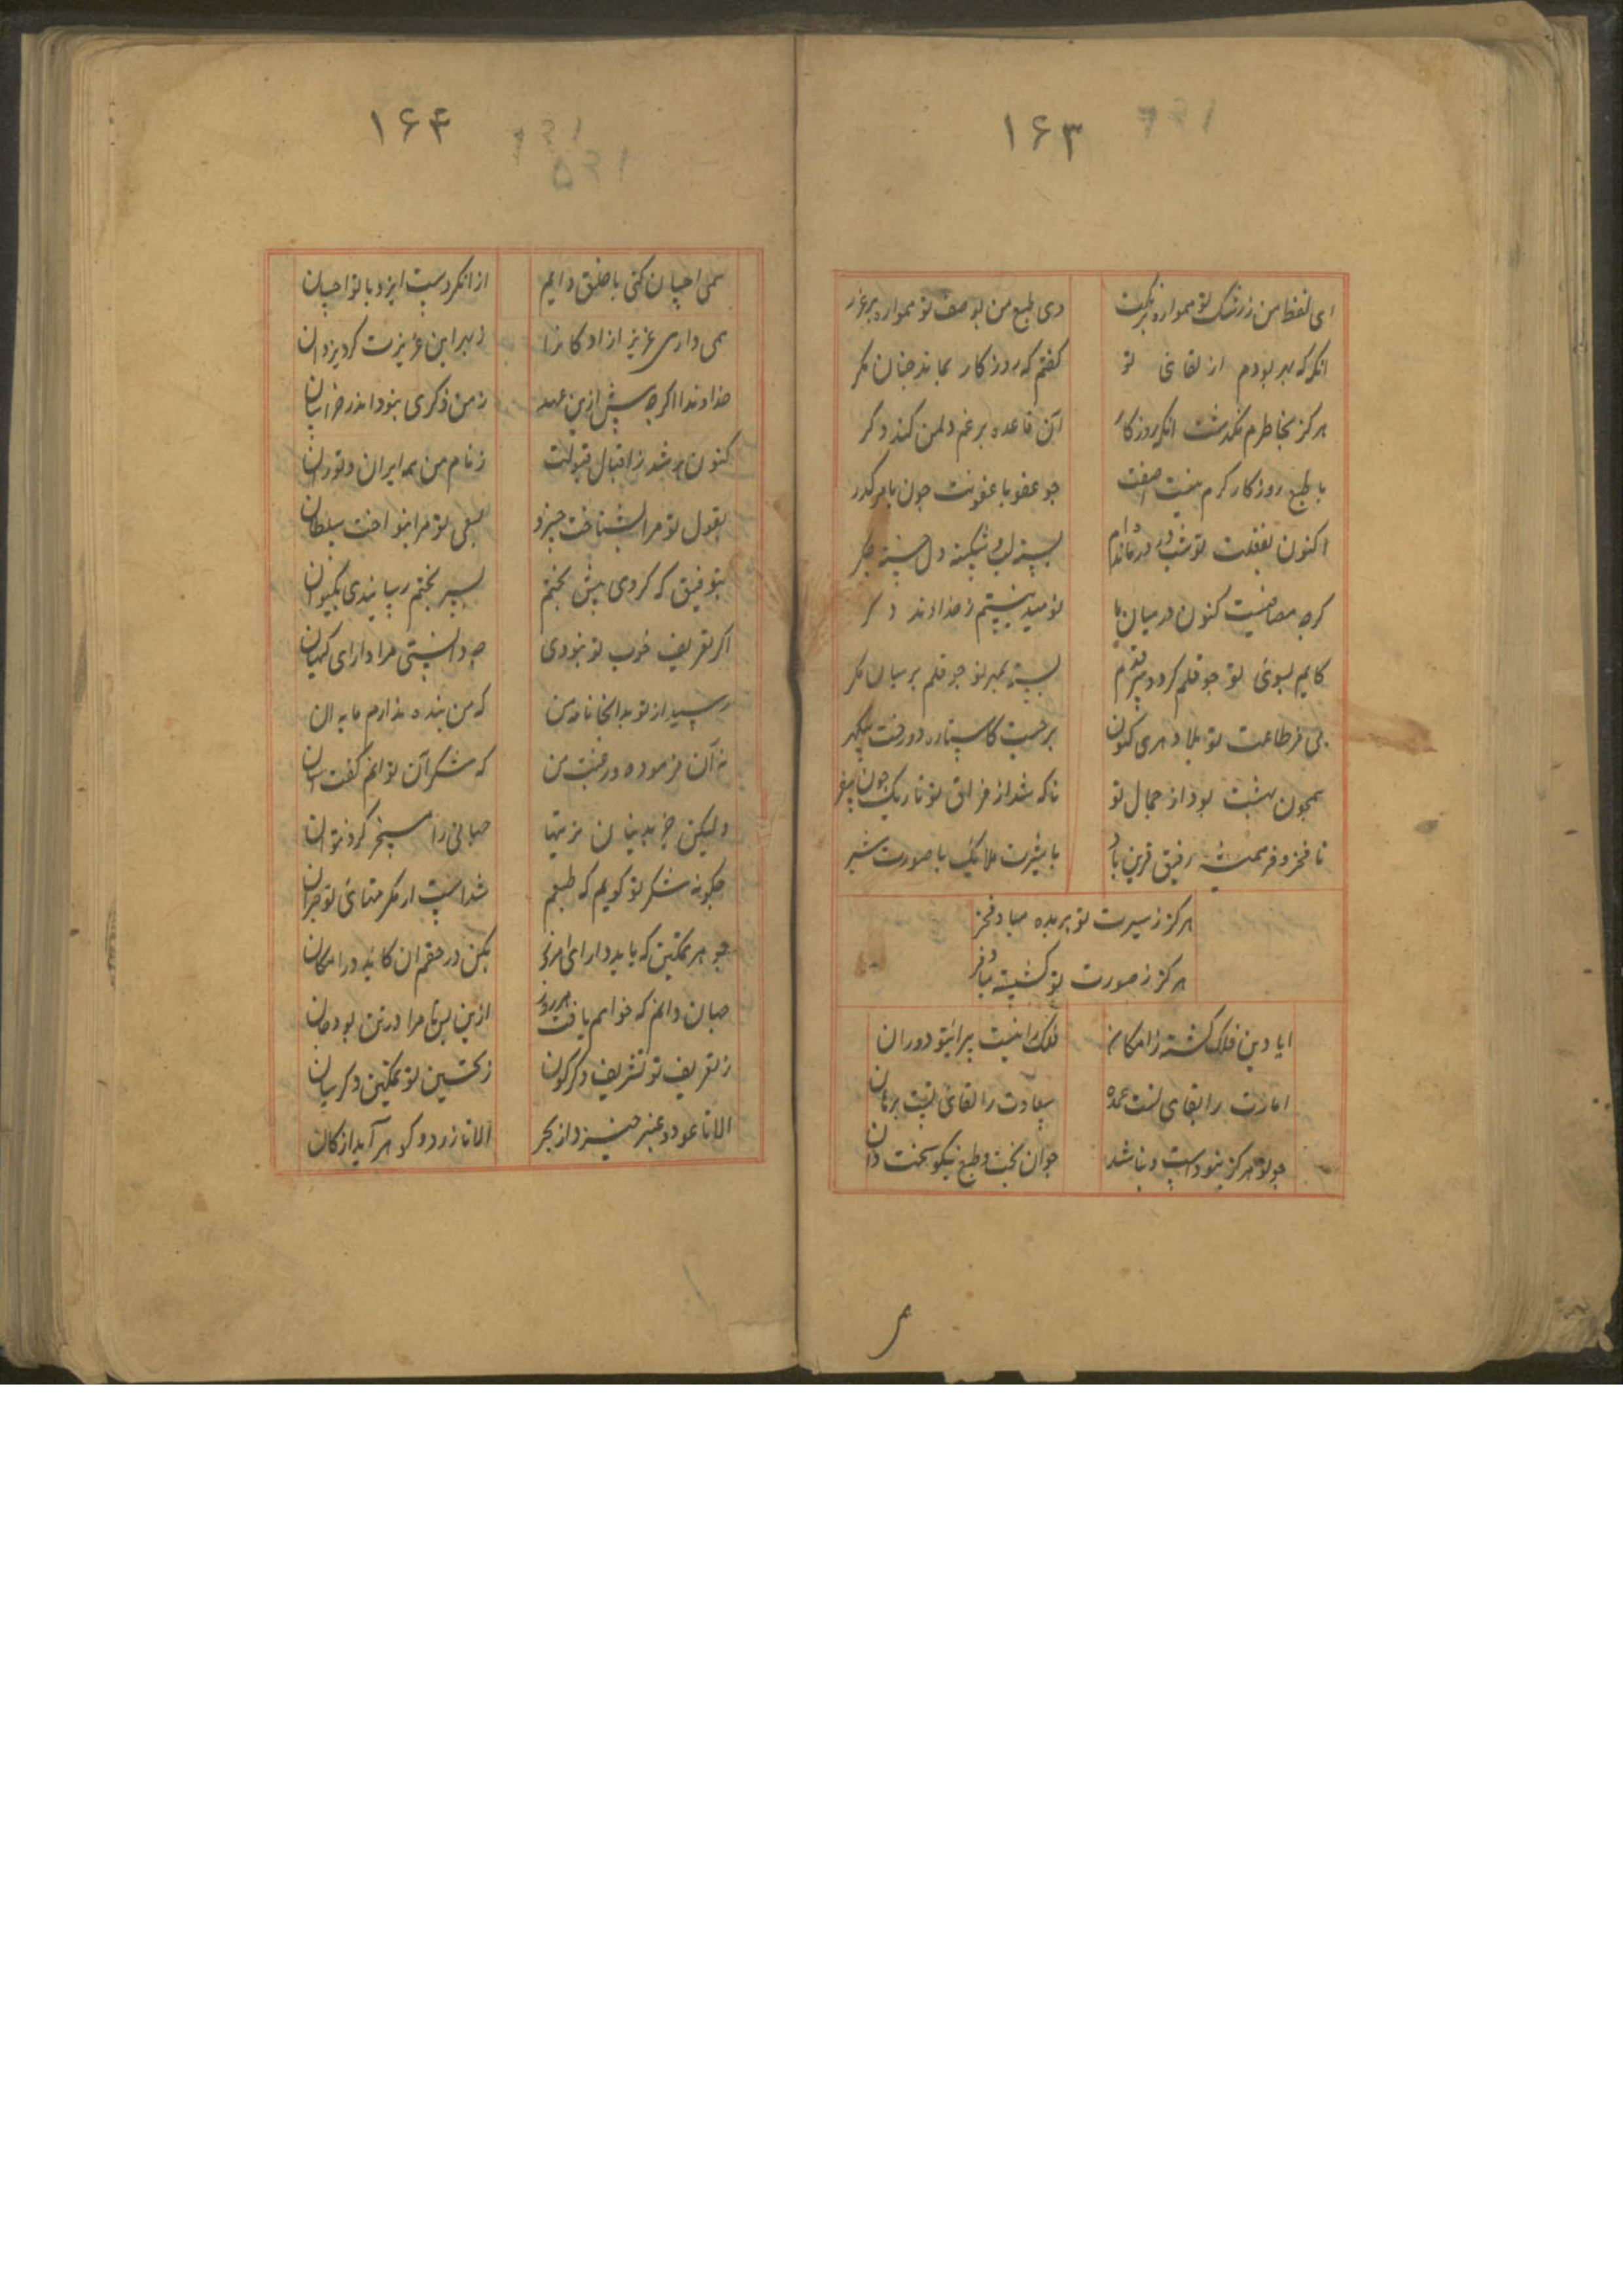 ۱۶۳
ای لفظ من ز شک تو همواره
وی طبع من بوصف تو همواره پرغرر
انکه که بودم از لقای تو
کفتم که روزکار بماند چنان مکر
هرکز بخاطرم نکذشت انک روزکار
این قاعده برغم دلمن کند دکر
با طبع روزکار کرم نیست
چو عفو با عقوبت چون باهر کدر
اکنون
بسته لب و شکسته دل خسته جکر
کرچه مصافیست کنون در میان ما
نومید نیستم ز خداوند دکر
کایم بسوی تو چو قلم کرد
بسته بمهر تو چو قلم بر میان کمر
بی فر طاعت تو بلا دهری کنون
برحسب کاستاره دورفت
همچون بهشت بود از جمال تو
ناکه شد از فراق تو تاریک چون سقر
تا فخر و فر همیشه رفیق و قرین باد
با سیرت ملایک با صورت بشر
هرکز ز سیرت تو بریده مباد فخر
هرکز ز صورت تو کسسته مباد فر
ایا دین فلک کشته ز امکانه
فلک را نیست بی رایتو دوران
امارت را بقای تست عمده
سعادت را لقای تست برهان
چو تو هرکز نبودست و نباشد
جوان بخت و طبع نیکو سخن دان
۱۶۴
همی احسان کنی با خلق دایم
از انکردست ایزد با تو احسان
همی داری عزیز ازادکانرا
ز بهر این عزیزت کرد یزدان
خداوندا اکرچه پیش ازین عهد
ز من ذکری نبود اندر خراسان
کنون پر شد ز اقبال قبولت
ز نام من همه ایران و توران
بقول تو مرا بشناخت خسرو
بسعی تو مرا بنواخت سلطان
بتوفیق که کردی پیش تختم
سر بختم رسانیدی بکیوان
اکر تعریف خوب تو نبودی
چه دانستی مرا دارای کیهان
رسید از تو بدانجا نامه من
که من بنده ندارم مایه ان
نه آن فرموده در حق من
که شکر آن توانم کفت اسان
ولیکن جز بدینسان مزیتها
جهانی را مسخر کرد نتوان
چکونه شکر تو کویم که طبعم
شداست از مکرمتهای تو حیران
چو هر تمکین که باید دارای امروز
بکن در حقم ان کاید در امکان
چنان دانم که خواهم یافت هر روز
ازین پس تا مرا در تن بود جان
ز تعریف تو تشریف دکرکون
ز تحسین تو تمکین دکرسان
الا تا عود و عنبر خیزد از بحر
الا تا زر و کوهر آید از کان